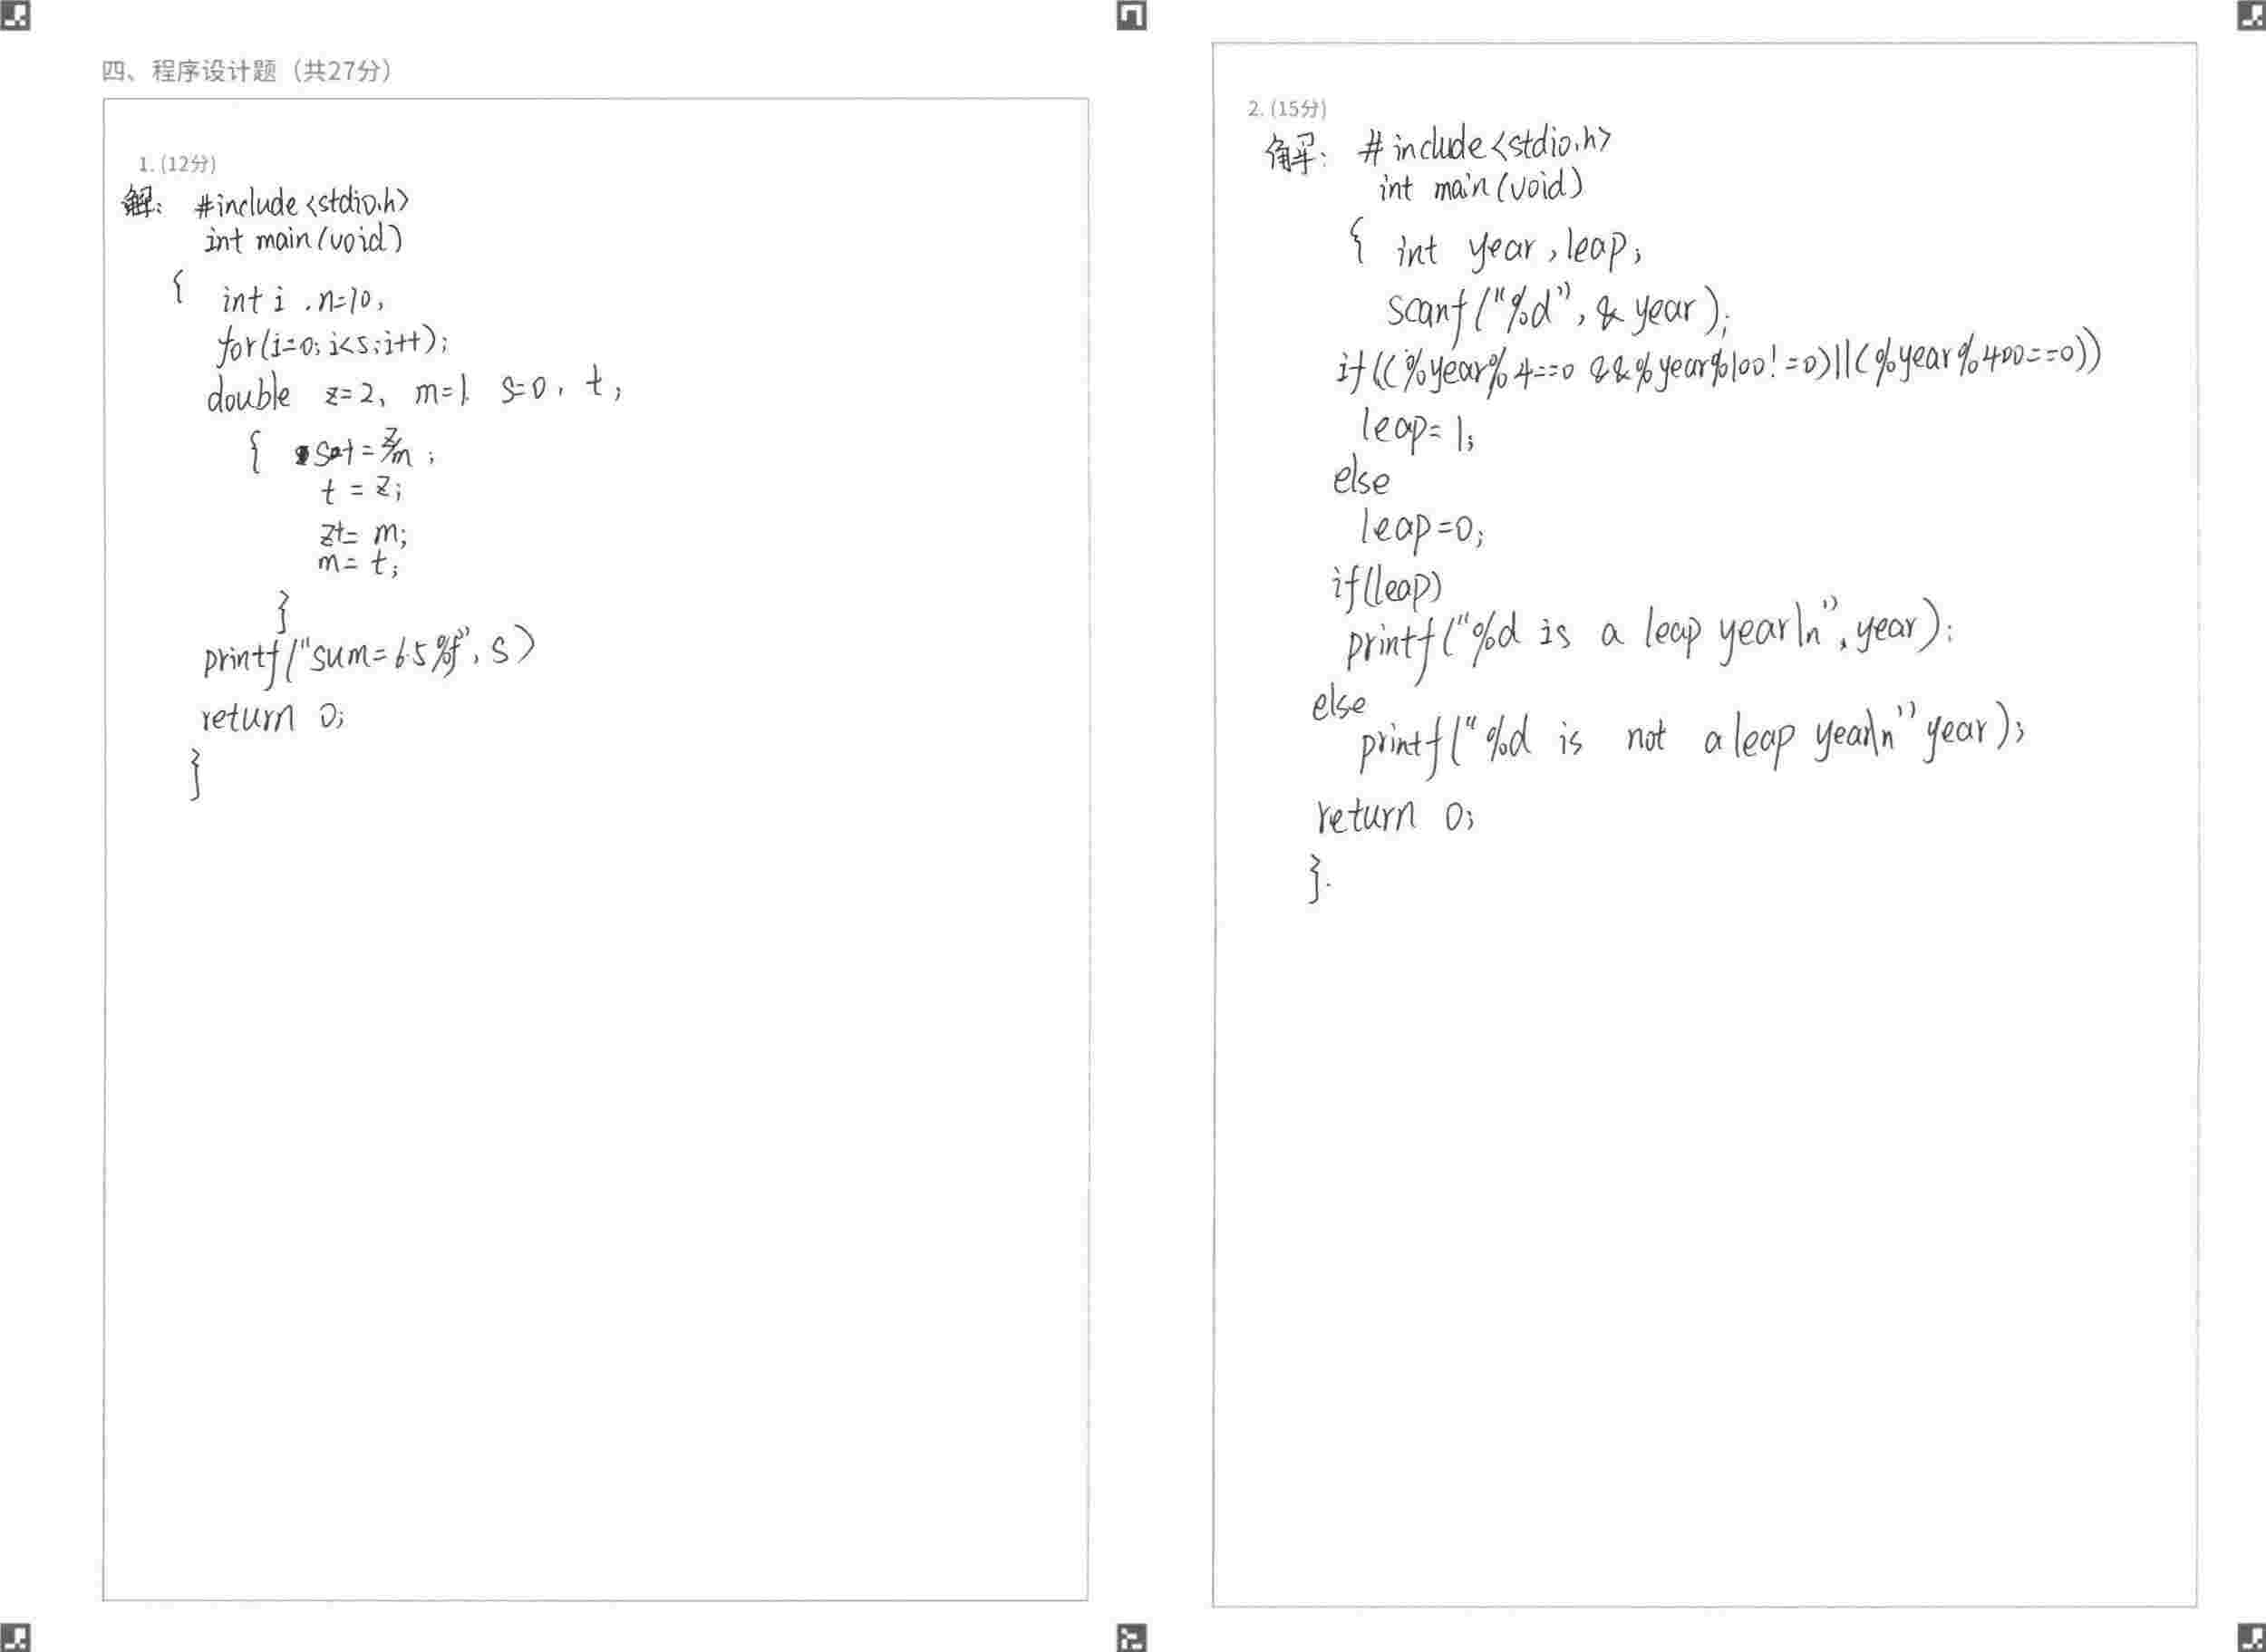 四、程序设计题（共27分）
1. (12分)
解： #include<stdio.h>
int main(void)
{ int i ,n=10,
for(i=0;i<s;i++);
double z=2, m=1. s=0, t;
{ s+=z/m;
t = z;
z+= m;
m= t;
}
printf("sum=6.5%f", s)
return 0;
}
2. (15分)
解： #include<stdio.h>
int main(void)
{ int year,leap;
scanf("%d", & year);
if((%year%4==0 &&%year%100!=0)||(%year%400==0))
leap=1;
else
leap=0;
if(leap)
printf("%d is a leap year\n",year);
else
printf("%d is not a leap year\n" year);
return 0;
}.